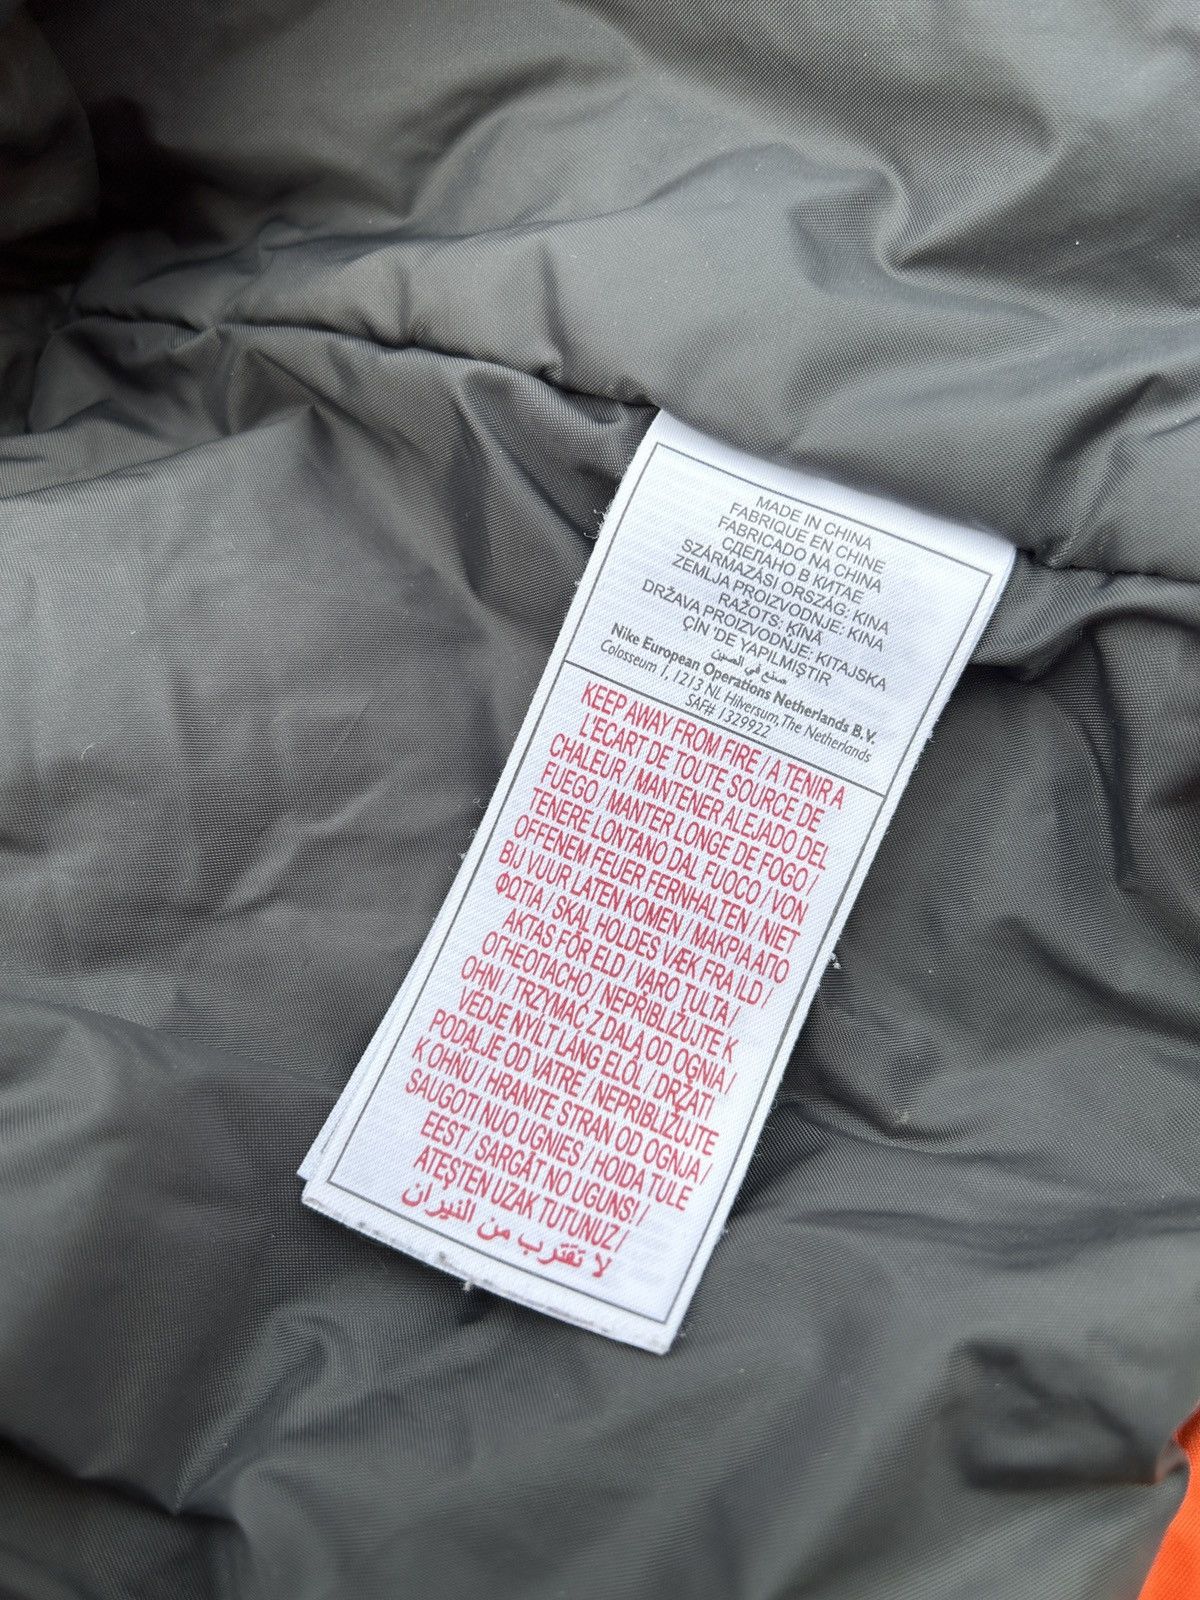 MADE IN CHINA
FABRIQUE EN CHINE
FABRICADO NA CHINA
СДЕЛАНО В КИТАЕ
SZÁRMAZÁSI ORSZÁG: KINA
ZEMLJA PROIZVODNJE: KINA
RAŽOTS: ĶĪNĀ
DRŽAVA PROIZVODNJE: KITAJSKA
ÇIN 'DE YAPILMIŞTIR
صنع في الصين
Nike European Operations Netherlands B.V.
Colosseum 1, 1213 NL Hilversum, The Netherlands
SAF# 1329922
KEEP AWAY FROM FIRE / A TENIR A
L'ECART DE TOUTE SOURCE DE
CHALEUR / MANTENER ALEJADO DEL
FUEGO / MANTER LONGE DE FOGO /
TENERE LONTANO DAL FUOCO / VON
OFFENEM FEUER FERNHALTEN / NIET
BIJ VUUR LATEN KOMEN / ΜΑΚΡΙΑ ΑΠΟ
ΦΩΤΙΑ / SKAL HOLDES VÆK FRA ILD /
AKTAS FÖR ELD / VARO TULTA /
ОГНЕОПАСНО / NEPŘIBLIŽUJTE K
OHNI / TRZYMAĆ Z DALA OD OGNIA /
VÉDJE NYÍLT LÁNG ELÖL / DRŽATI
PODALJE OD VATRE / NEPRIBLIŽUJTE
K OHNU / HRANITE STRAN OD OGNJA /
SAUGOTI NUO UGNIES / HOIDA TULE
EEST / SARGĀT NO UGUNS! /
ATEŞTEN UZAK TUTUNUZ /
لا تقترب من النيران